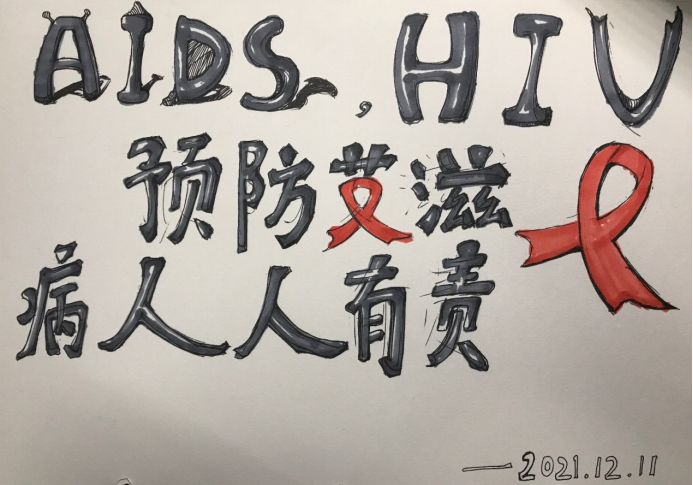 AIDS, HIV
预防艾滋
病人人有责
—2021.12.11